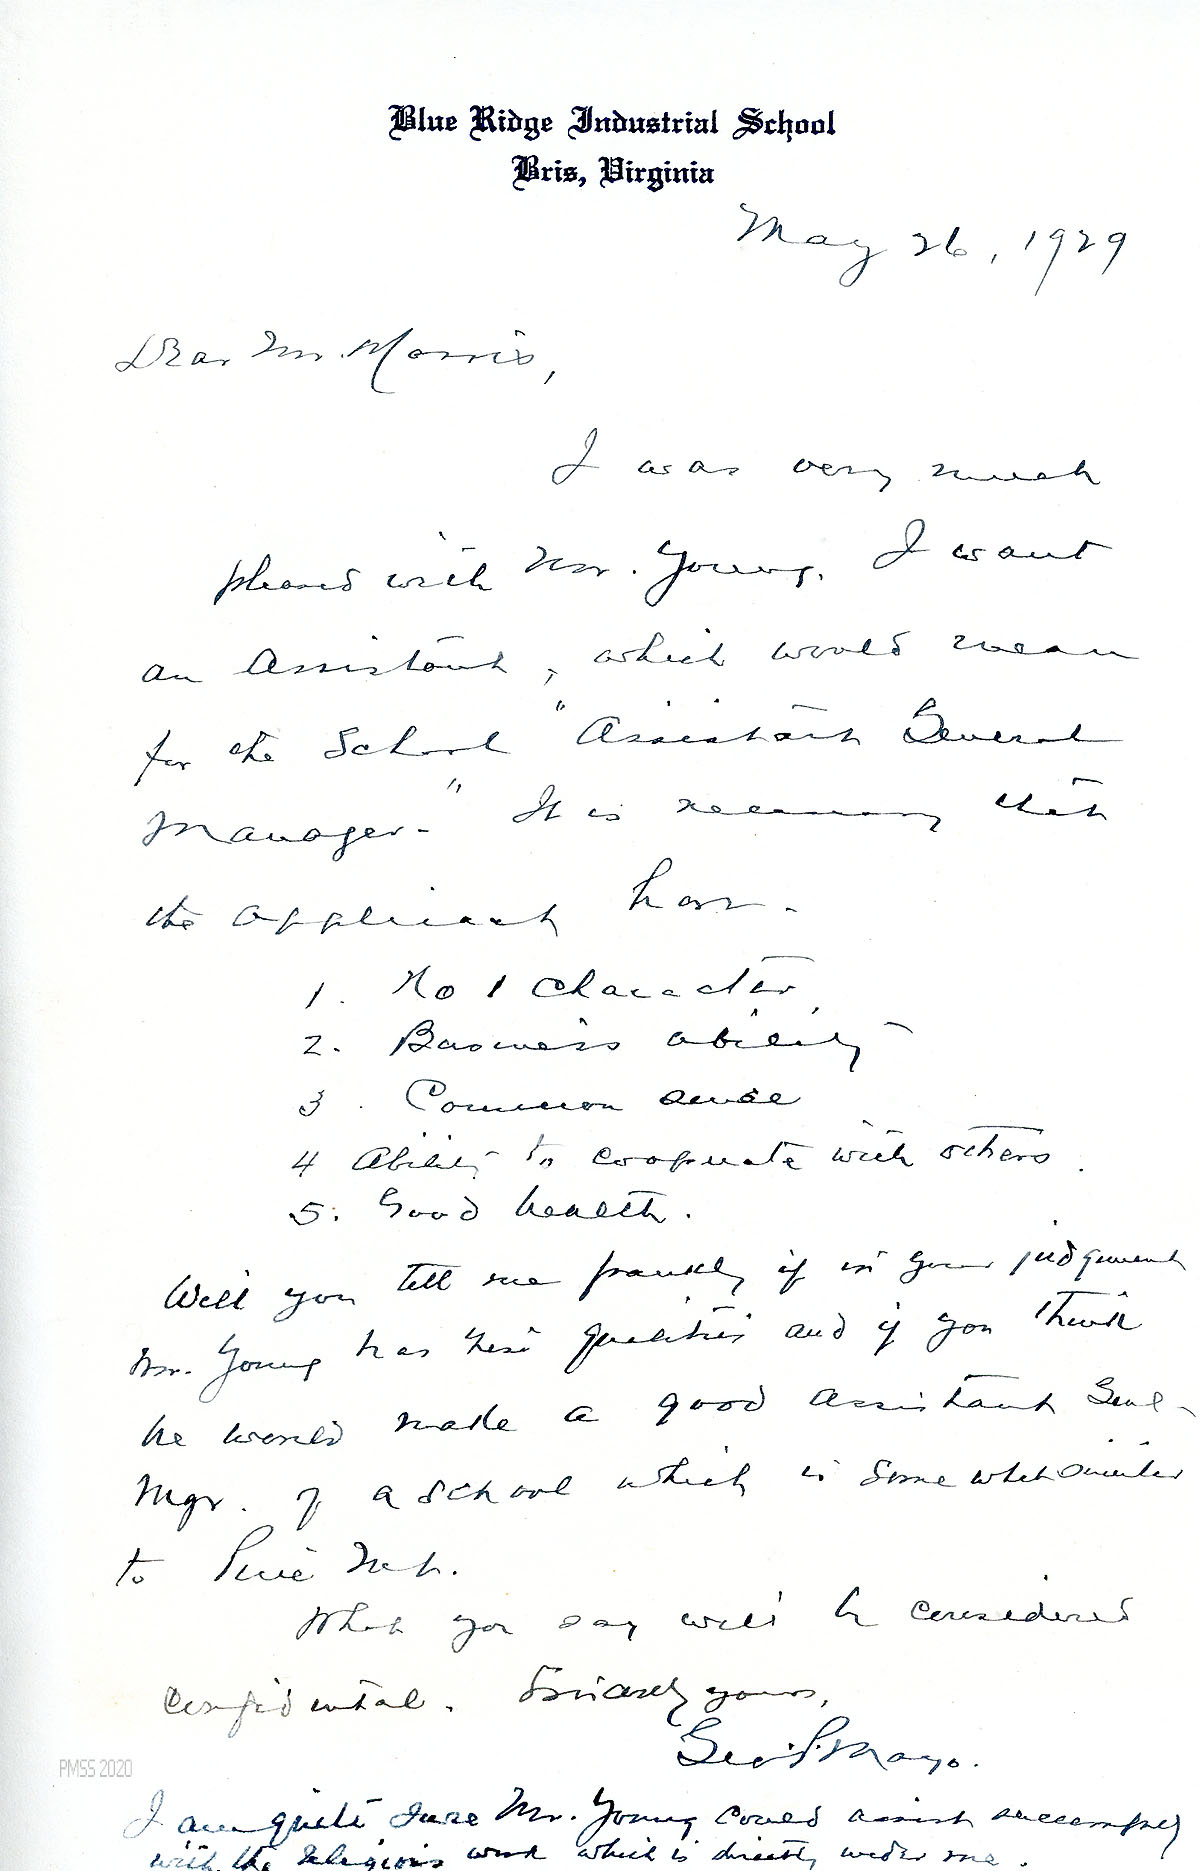 Blue Ridge Industrial School
Bris, Virginia
May 26, 1929
Dear Mr. Morris,
I was very much
pleased with Mr. Young. I want
an Assistant, which would mean
for the School "Assistant General
Manager." It is necessary that
the applicant have -
1. No 1 character
2. Business ability
3. Common sense
4 Ability to cooperate with others.
5. Good health.
Will you tell me frankly if in your judgment
Mr. Young has these qualities and if you think
he would make a good Assistant Genl -
Mgr. of a School which is somewhat similar
to Pine Mt.
What you say will be considered
confidential. Sincerely yours,
Geo. P. Mayo.
PMSS 2020
I am quite sure Mr. Young could assist successfully
with the religious work which is directly under me.